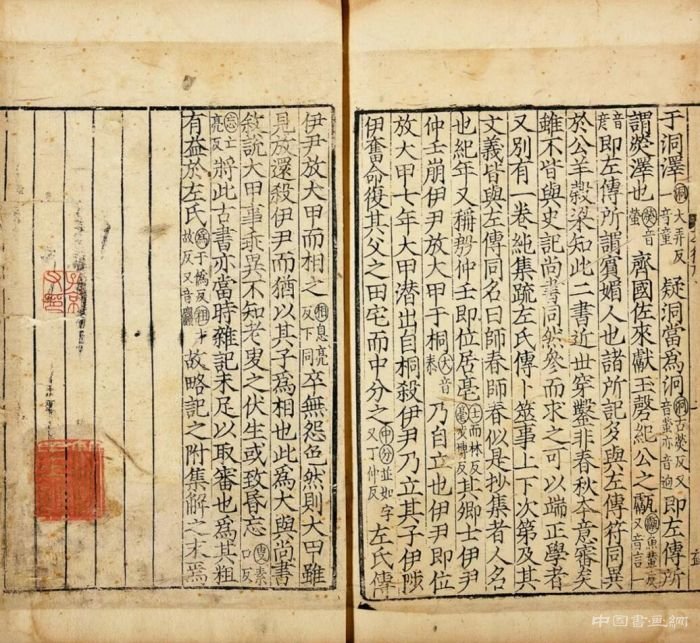 于洞澤洞大弄反音童疑洞當爲泂泂古熒反又音螢亦音迥即左傳所
謂熒澤也熒音螢齊國佐來獻玉磬紀公之甗甗魚輦反又音言一
音彦即左傳所謂賓媚人也諸所記多與左傳符同異
於公羊穀梁知此二書近世穿鑿非春秋本意審矣
雖不皆與史記尚書同然參而求之可以端正學者
又別有一卷純集疏左氏傳卜筮事上下次第及其
文義皆與左傳同名曰師春師春似是抄集者人名
也紀年又稱殷仲壬即位居亳壬而林反亳反其卿士伊尹
仲壬崩伊尹放大甲于桐大音泰乃自立也伊尹即位
放大甲七年大甲潛出自桐殺伊尹乃立其子伊陟
伊奮命復其父之田宅而中分之中分並如字又丁仲反左氏傳
伊尹放大甲而相之相息亮反下同卒無怨色然則大甲雖
見放還殺伊尹而猶以其子爲相也此爲大與尚書
敘說大甲事乖異不知老叟之伏生或致昏忘叟素口反
忘亡亮反將此古書亦當時雜記未足以取審也爲其粗
有益於左氏爲于僞反粗才故反又音麤故略記之附集解之末焉
中国書画網